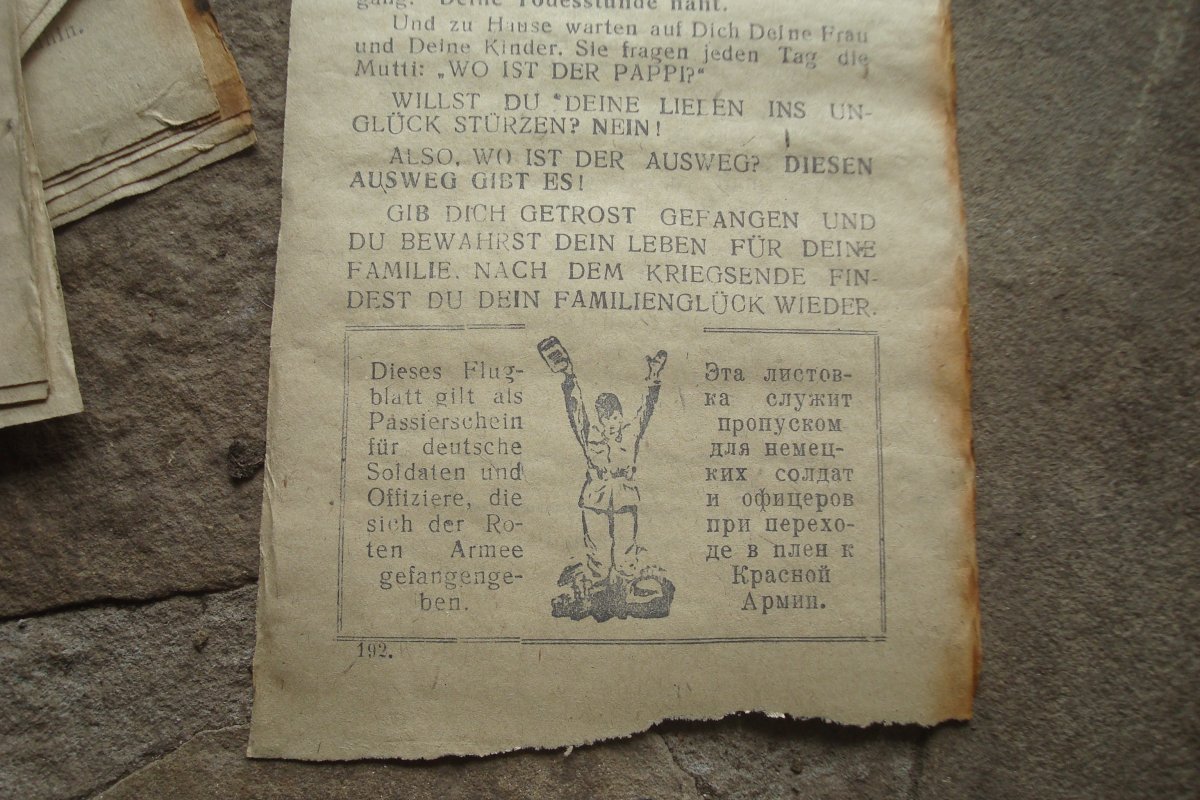 gang! Deine Todesstunde naht.
Und zu Hause warten auf Dich Deine Frau
und Deine Kinder. Sie fragen jeden Tag die
Mutti: „WO IST DER PAPPI?“
WILLST DU DEINE LIEBEN INS UN-
GLÜCK STÜRZEN? NEIN!
ALSO, WO IST DER AUSWEG? DIESEN
AUSWEG GIBT ES!
GIB DICH GETROST GEFANGEN UND
DU BEWAHRST DEIN LEBEN FÜR DEINE
FAMILIE. NACH DEM KRIEGSENDE FIN-
DEST DU DEIN FAMILIENGLÜCK WIEDER.
Dieses Flug-
blatt gilt als
Passierschein
für deutsche
Soldaten und
Offiziere, die
sich der Ro-
ten Armee
gefangenge-
ben.
Эта листов-
ка служит
пропуском
для немец-
ких солдат
и офицеров
при перехо-
де в плен к
Красной
Армии.
192.